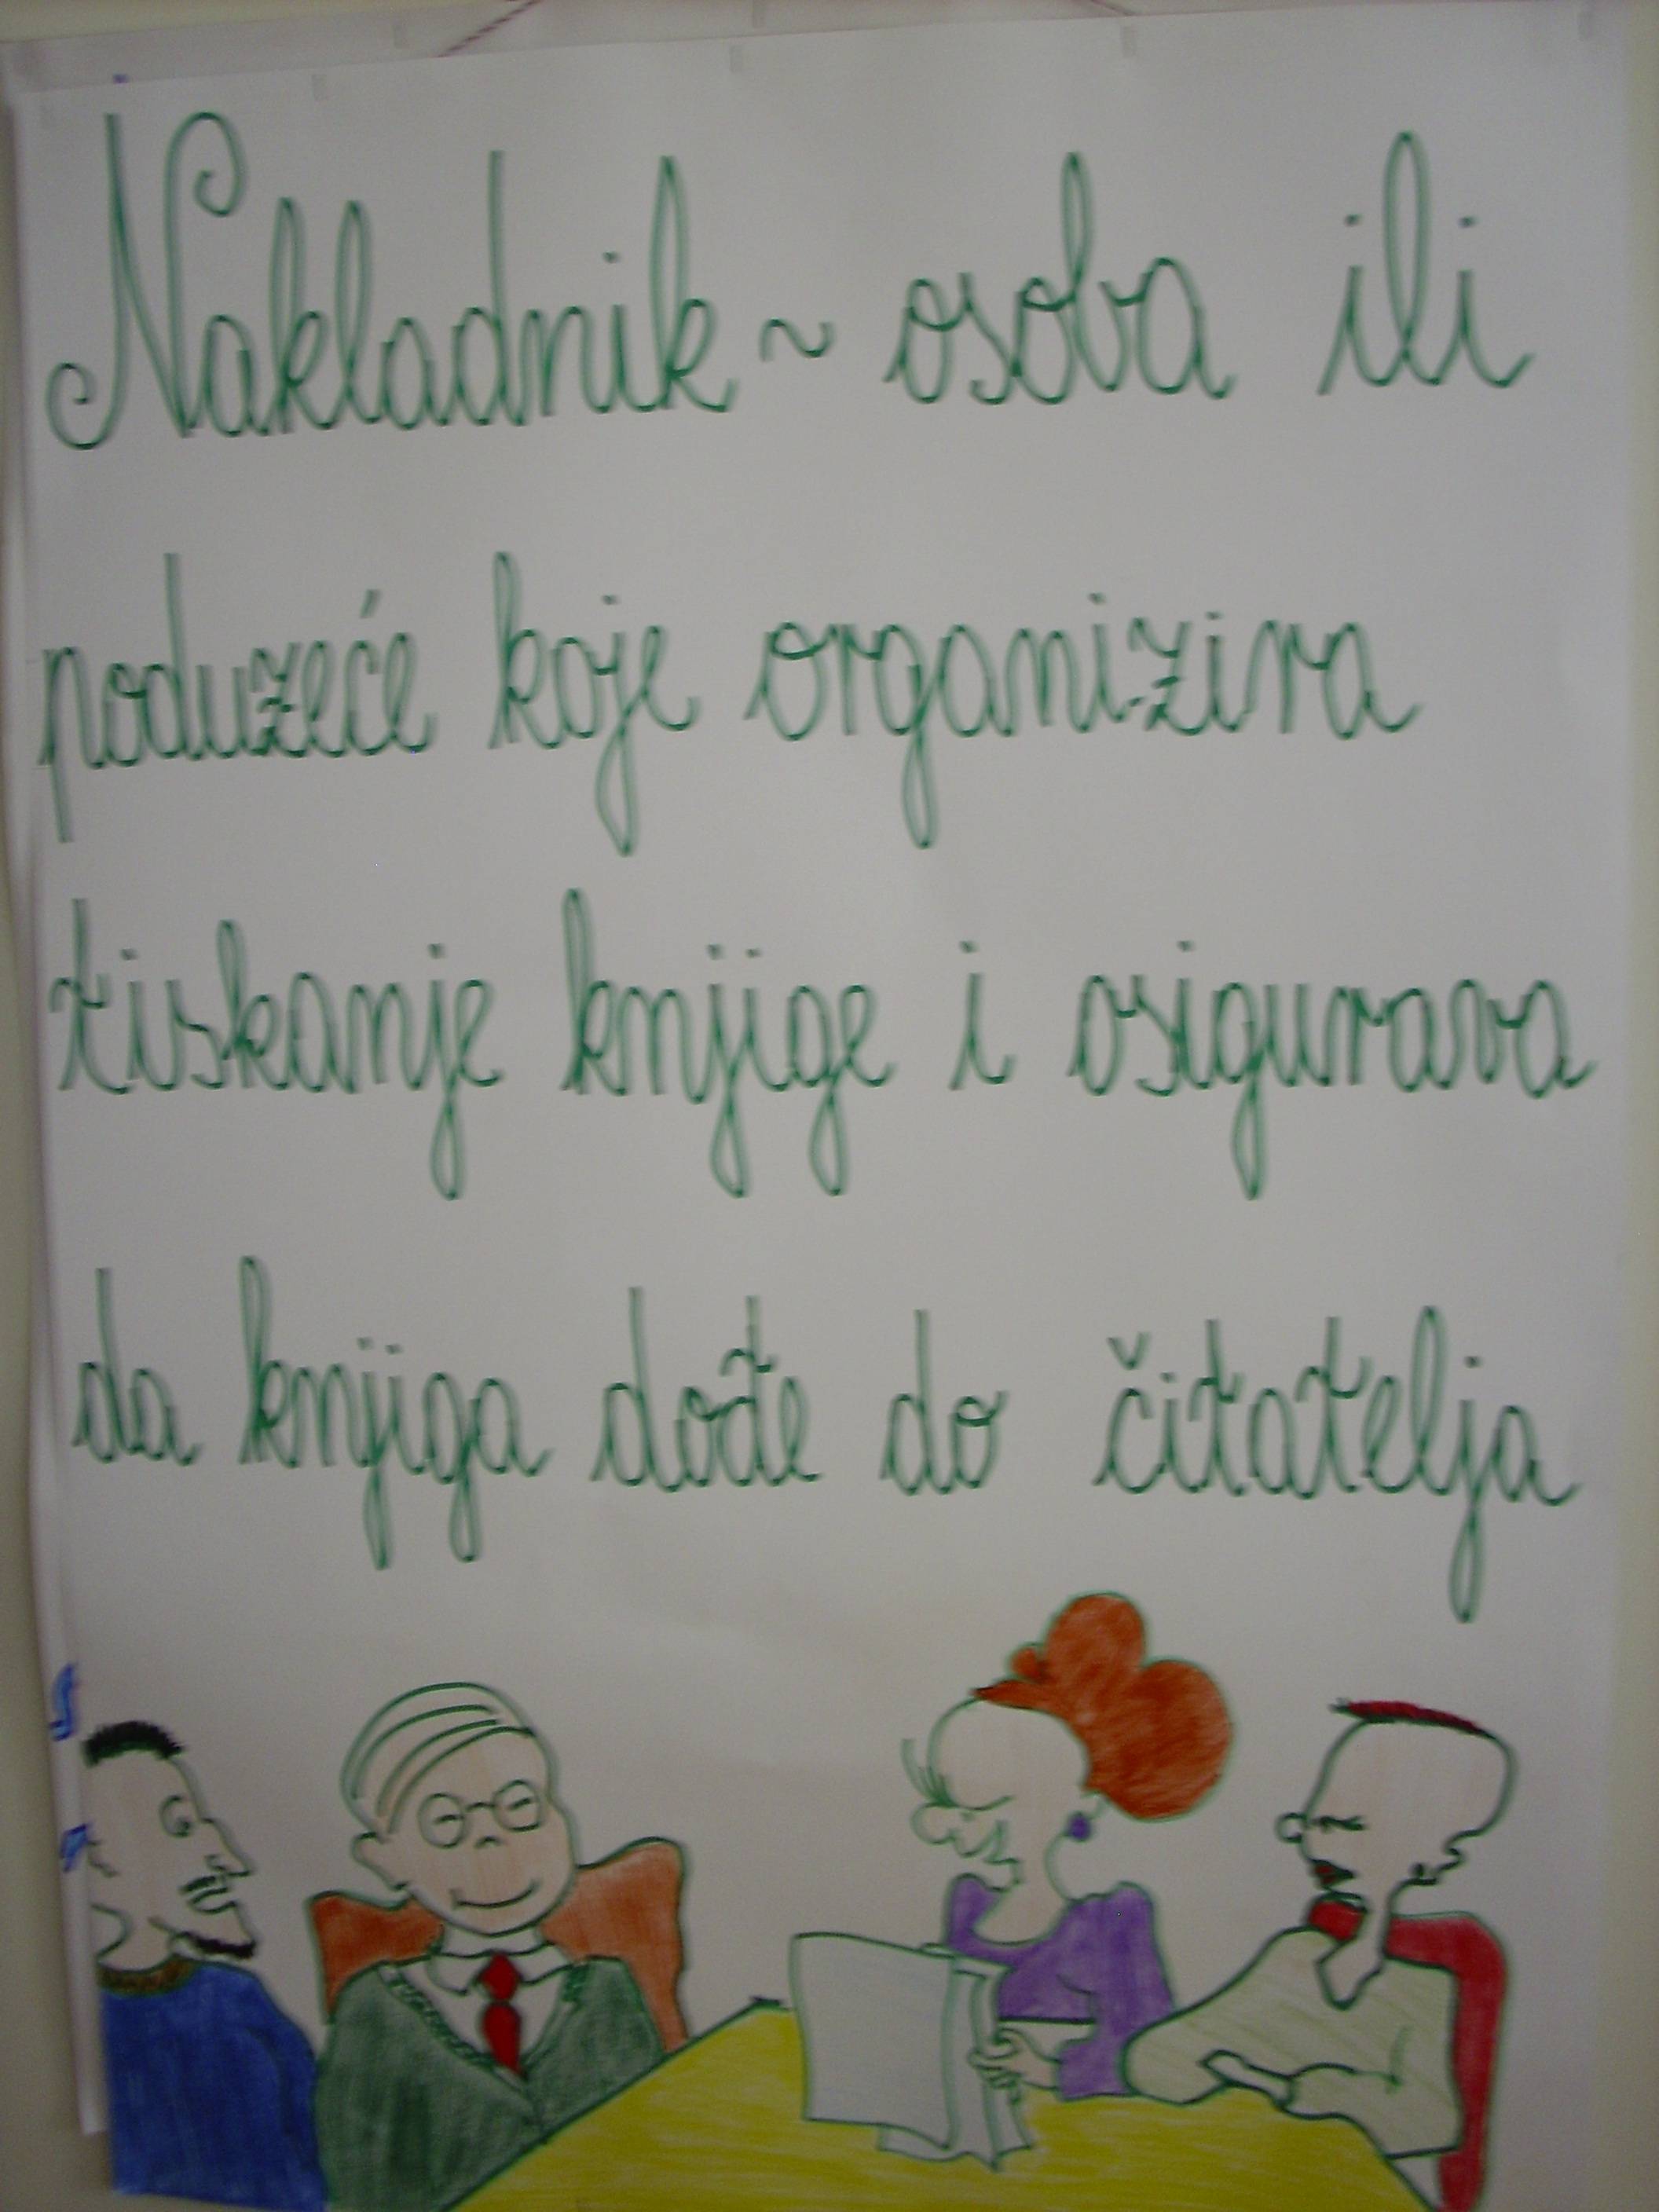 Nakladnik ~ osoba ili
poduzeće koje organizira
tiskanje knjige i osigurava
da knjiga dođe do čitatelja